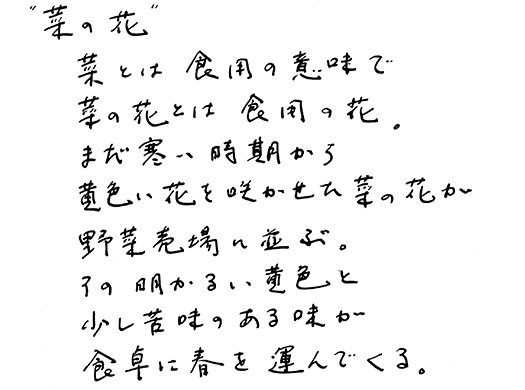 "菜の花"
菜とは食用の意味で
菜の花とは食用の花。
まだ寒い時期から
黄色い花を咲かせた菜の花が
野菜売場に並ぶ。
その明かるい黄色と
少し苦味のある味が
食卓に春を運んでくる。